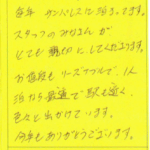 毎年 サンパレスに泊ってます。
スタッフのみなさんが
とても親切にしてくれます。
お値段もリーズナブルで、1人
泊から 最適で 駅も近く、
色々と出かけています。
今年もありがとうございます。